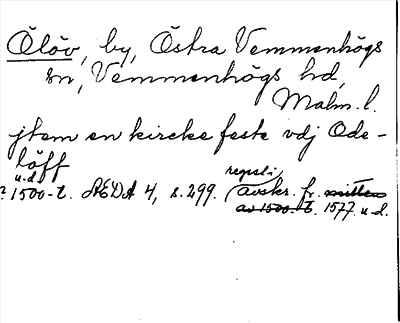 Ölöv, by, Östra Vemmenhögs
sn, Vemmenhögs hd,
Malm. l.
jtem en kircke feste vdj Ode-
löff
u.d.
? 1500-t. ÆDA 4, s. 299. avskr. fr. mitten
av 1500-t. 1577 u.d.